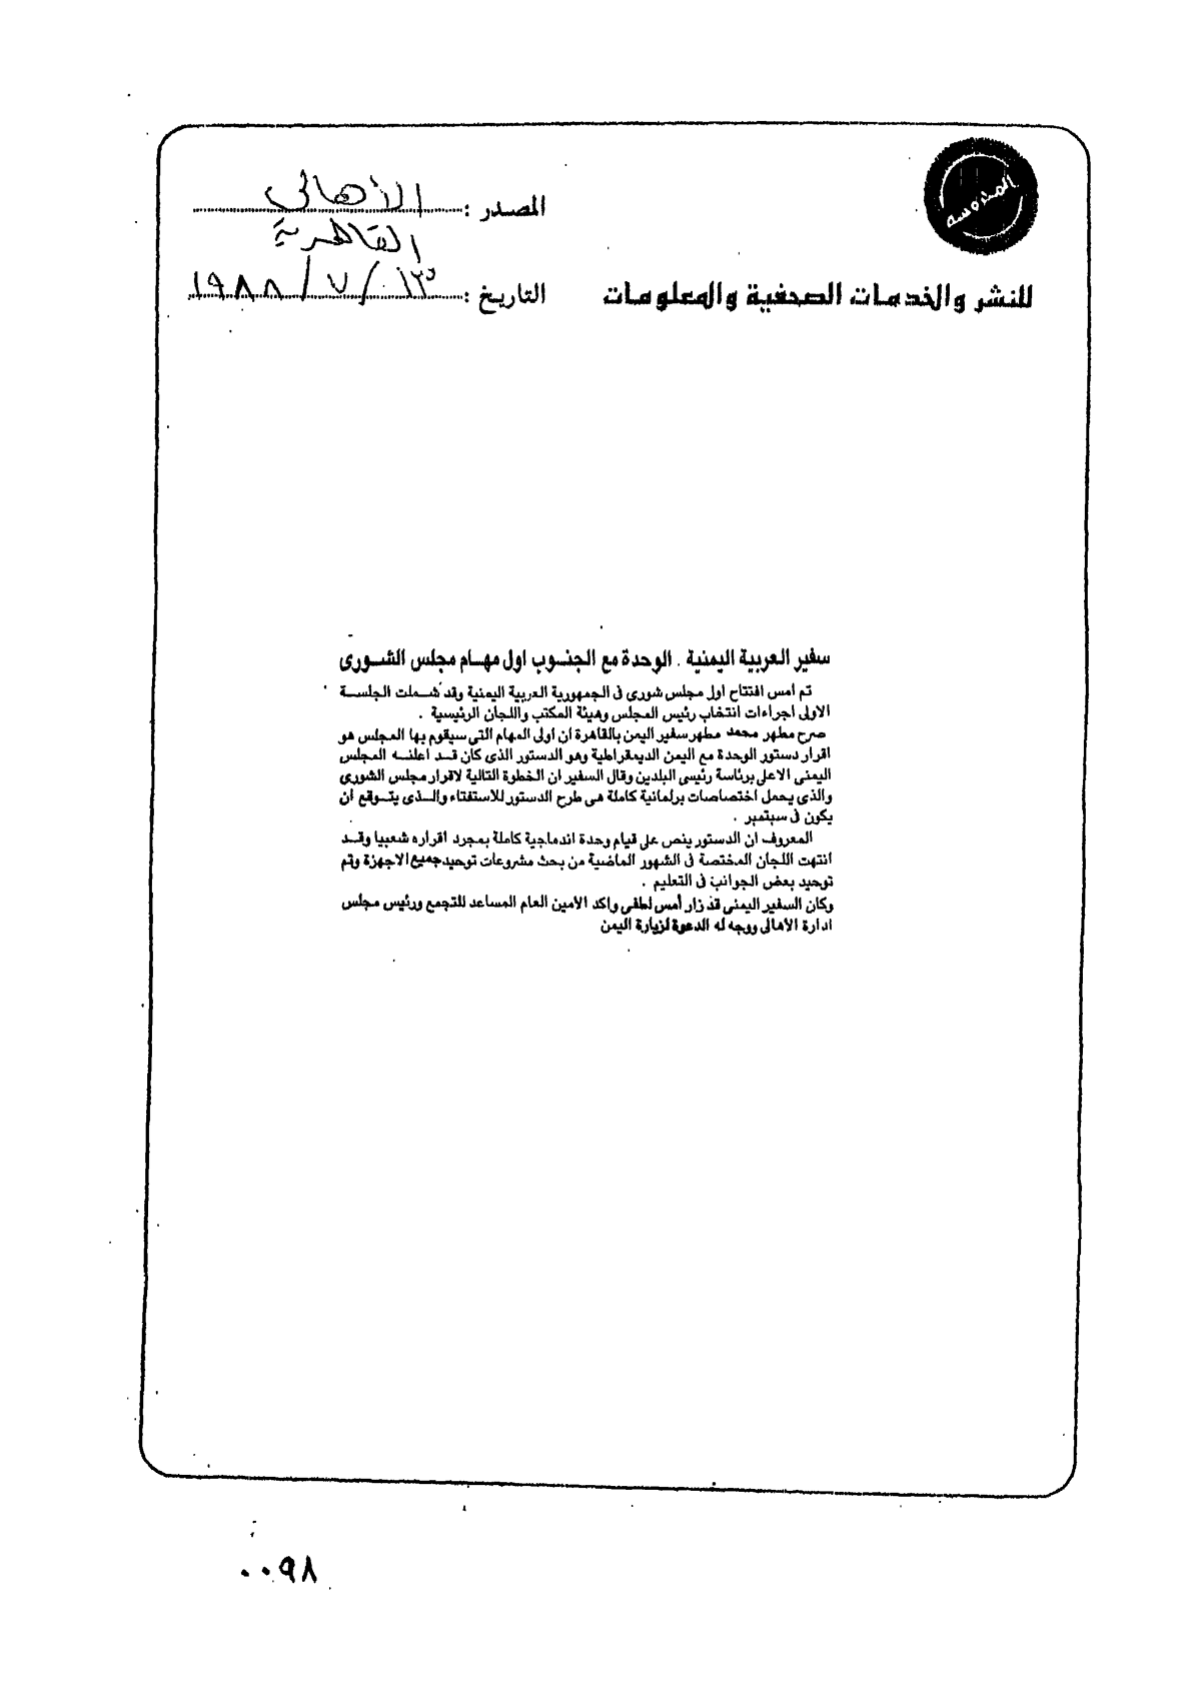 المحروسة
المصدر : الأهالى
القاهرية
للنشر والخدمات الصحفية والمعلومات
التاريخ : ١٣ / ٧ / ١٩٨٨
سفير العربية اليمنية . الوحدة مع الجنوب اول مهام مجلس الشورى
تم أمس افتتاح اول مجلس شورى فى الجمهورية العربية اليمنية وقد شملت الجلسة
الاولى اجراءات انتخاب رئيس المجلس وهيئة المكتب واللجان الرئيسية .
صرح مطهر محمد مطهر سفير اليمن بالقاهرة ان اولى المهام التى سيقوم بها المجلس هو
اقرار دستور الوحدة مع اليمن الديمقراطية وهو الدستور الذى كان قد اعلنه المجلس
اليمنى الاعلى برئاسة رئيسى البلدين وقال السفير ان الخطوة التالية لاقرار مجلس الشورى
والذى يحمل اختصاصات برلمانية كاملة هى طرح الدستور للاستفتاء والذى يتوقع ان
يكون فى سبتمبر .
المعروف ان الدستور ينص على قيام وحدة اندماجية كاملة بمجرد اقراره شعبيا وقد
انتهت اللجان المختصة فى الشهور الماضية من بحث مشروعات توحيد جميع الاجهزة وتم
توحيد بعض الجوانب فى التعليم .
وكان السفير اليمنى قد زار أمس لطفى واكد الأمين العام المساعد للتجمع ورئيس مجلس
ادارة الأهالى ووجه له الدعوة لزيارة اليمن
٠٠٩٨